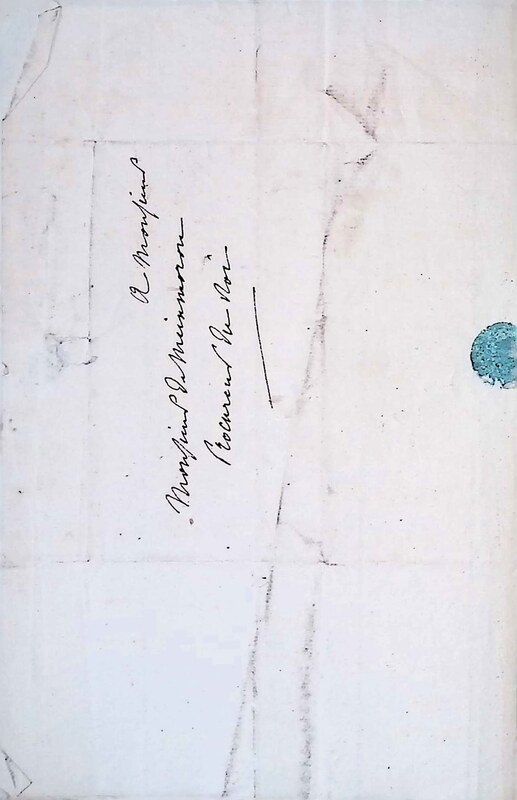 A Monsieur
Monsieur de Meixmoron
Procureur du Roi